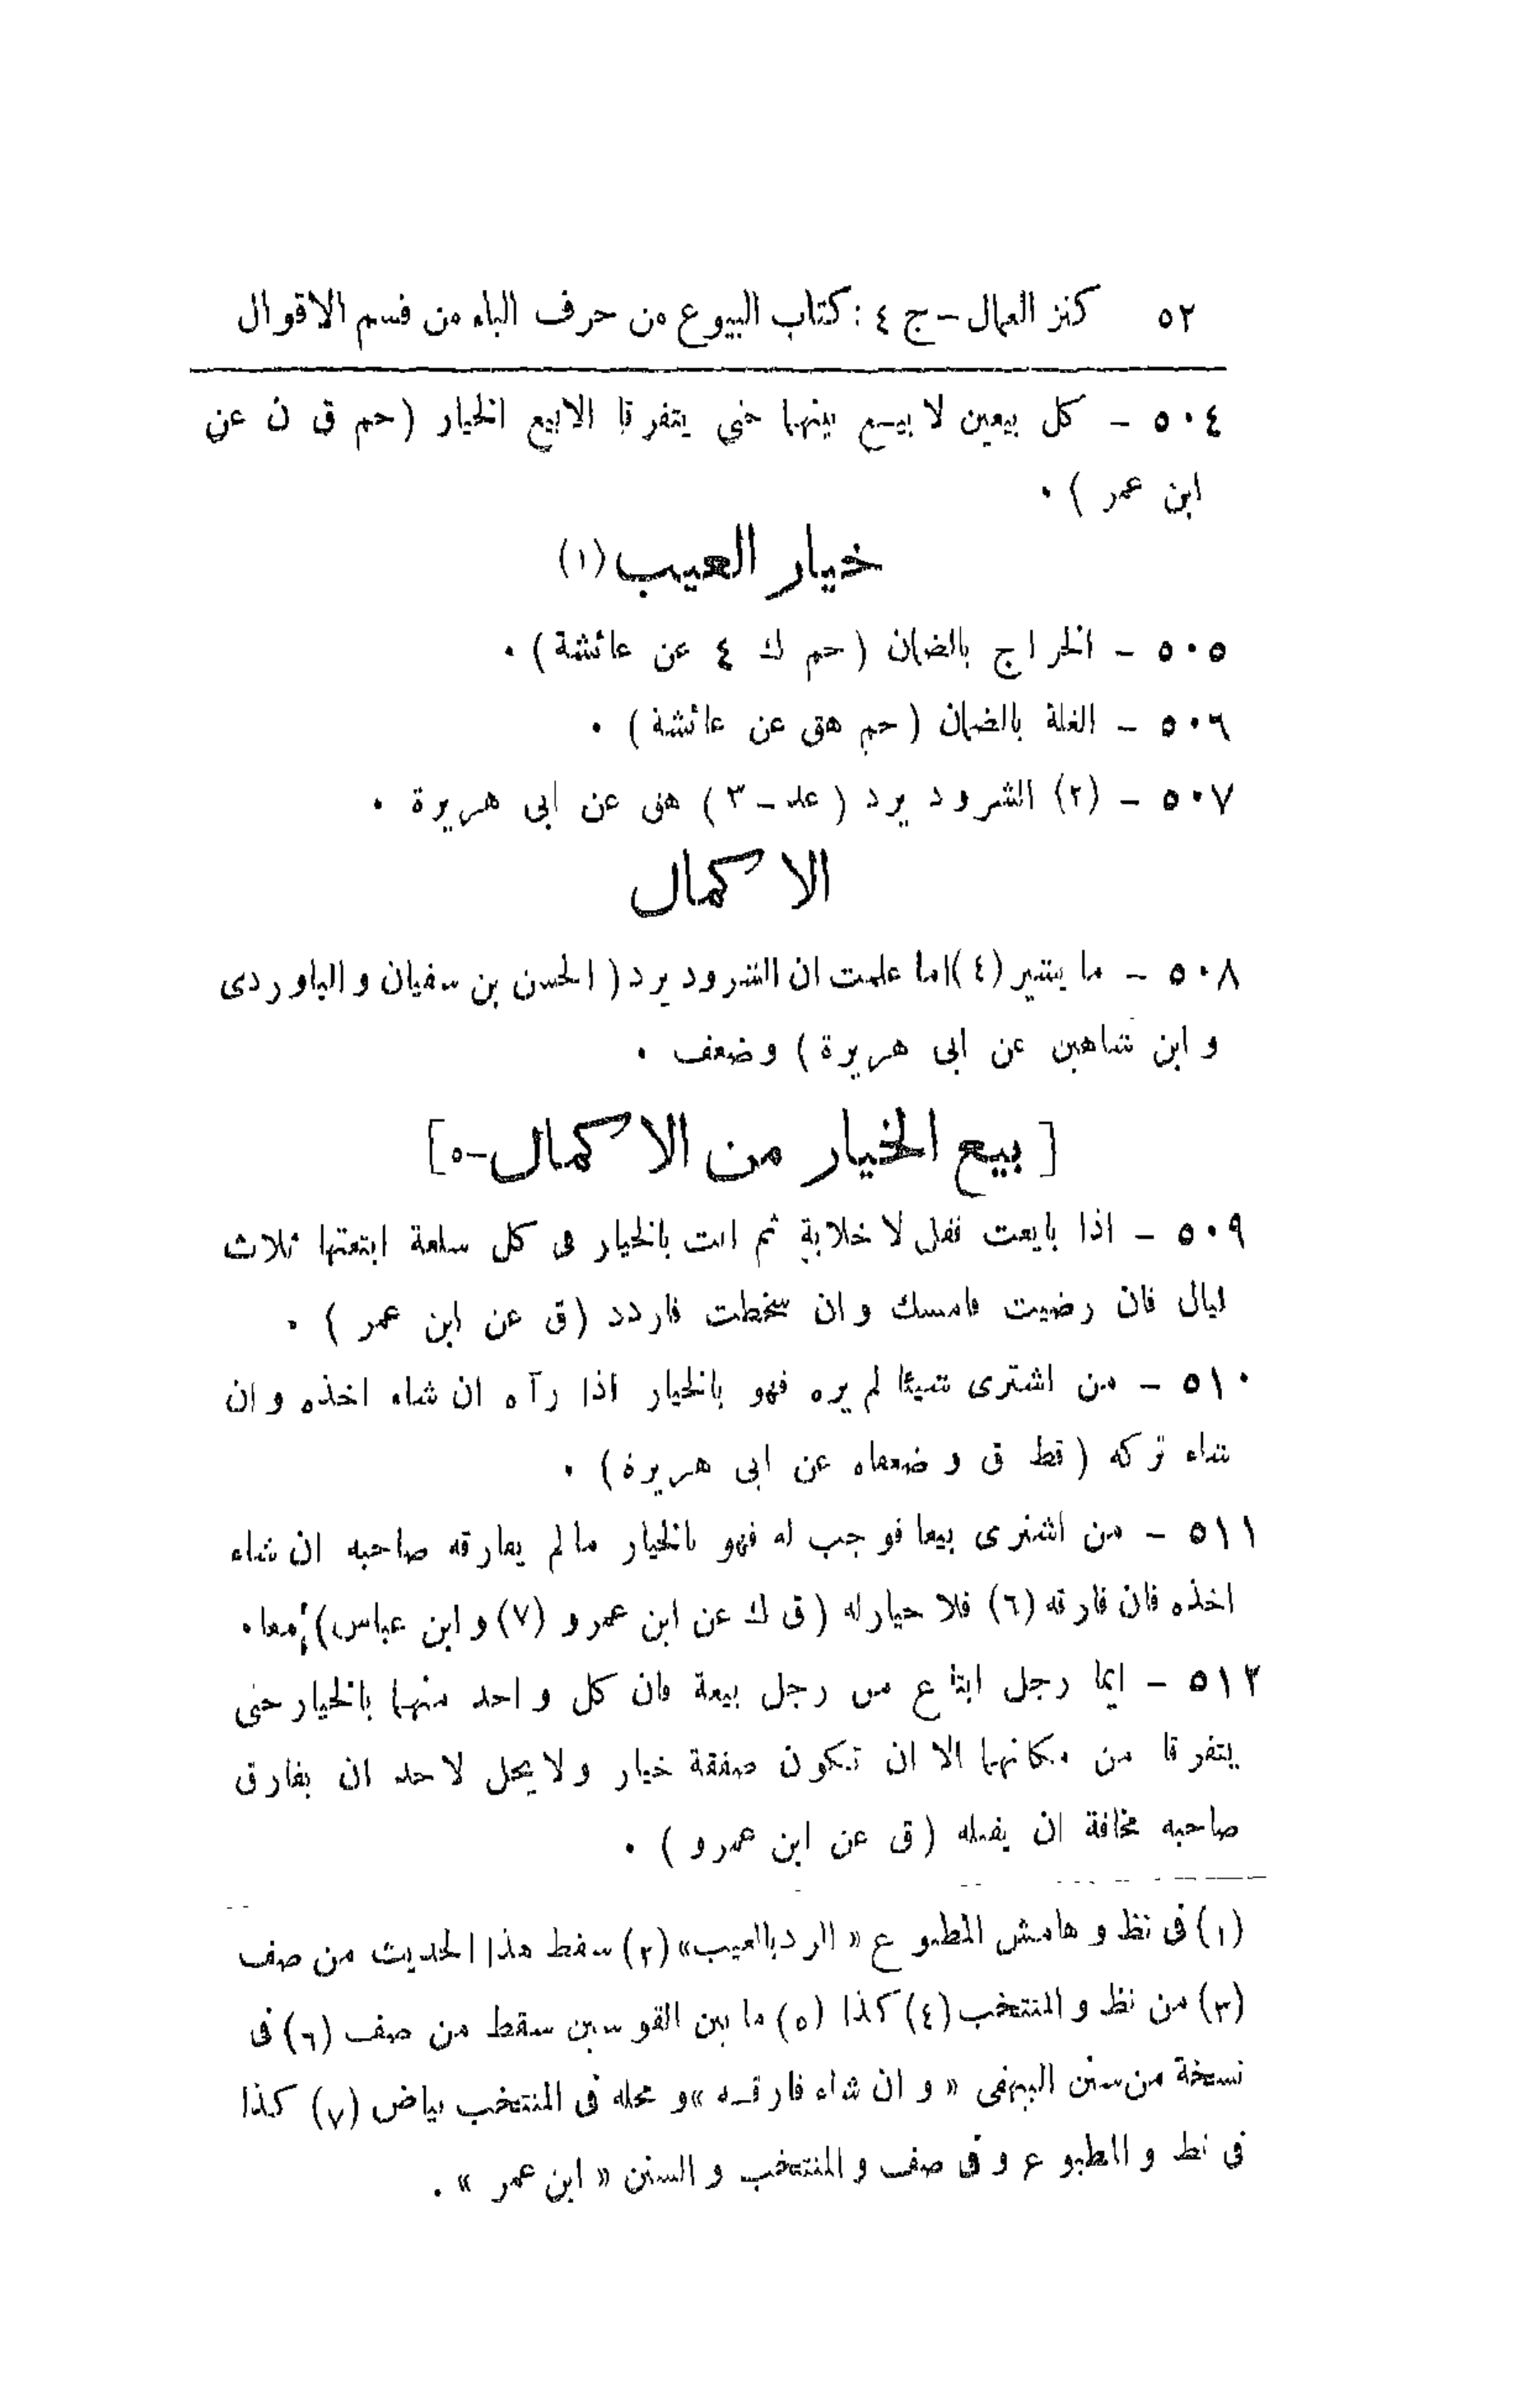 ٥٢ كنز العمال – ج ٤ : كتاب البيوع من حرف الباء من قسم الاقوال
٥٠٤ – كل بيعين لا بيع بينهما حتى يتفرقا الا بيع الخيار (حم ق ن عن
ابن عمر) ٠
خيار العيب (١)
٥٠٥ – الخراج بالضمان (حم ك ٤ عن عائشة) ٠
٥٠٦ – الغلة بالضمان (حم هق عن عائشة) ٠
٥٠٧ – (٢) الشرود يرد (عد – ٣) هق عن ابى هريرة ٠
الاكمال
٥٠٨ – ما بشير (٤) اما علمت ان الشرود يرد (الحسن بن سفيان و الباوردى
و ابن شاهين عن ابى هريرة) وضعف ٠
[بيع الخيار من الاكمال – ٥]
٥٠٩ – اذا بايعت فقل لا خلابة ثم انت بالخيار فى كل سلعة ابتعتها ثلاث
ليال فان رضيت فامسك و ان سخطت فاردد (ق عن ابن عمر) ٠
٥١٠ – من اشترى شيئا لم يره فهو بالخيار اذا رآه ان شاء اخذه و ان
شاء تركه (قط ق و ضعفاه عن ابى هريرة) ٠
٥١١ – من اشترى بيعا فوجب له فهو بالخيار ما لم يفارقه صاحبه ان شاء
اخذه فان فارقه (٦) فلا خيار له (ق ك عن ابن عمرو (٧) و ابن عباس) معا ٠
٥١٢ – ايما رجل ابتاع من رجل بيعة فان كل و احد منهما بالخيار حتى
يتفرقا من مكانهما الا ان تكون صفقة خيار ولا يحل لاحد ان يفارق
صاحبه مخافة ان يقيله (ق عن ابن عمرو) ٠
(١) فى نظ و هامش المطبوع « الرد بالعيب» (٢) سقط هذا الحديث من صف
(٣) من نظ و المنتخب (٤) كذا (٥) ما بين القوسين سقط من صف (٦) فى
نسخة من سنن البيهقى « و ان شاء فارقــه » و محله فى المنتخب بياض (٧) كذا
فى نظ و المطبوع و فى صف و المنتخب و السنن « ابن عمر » ٠